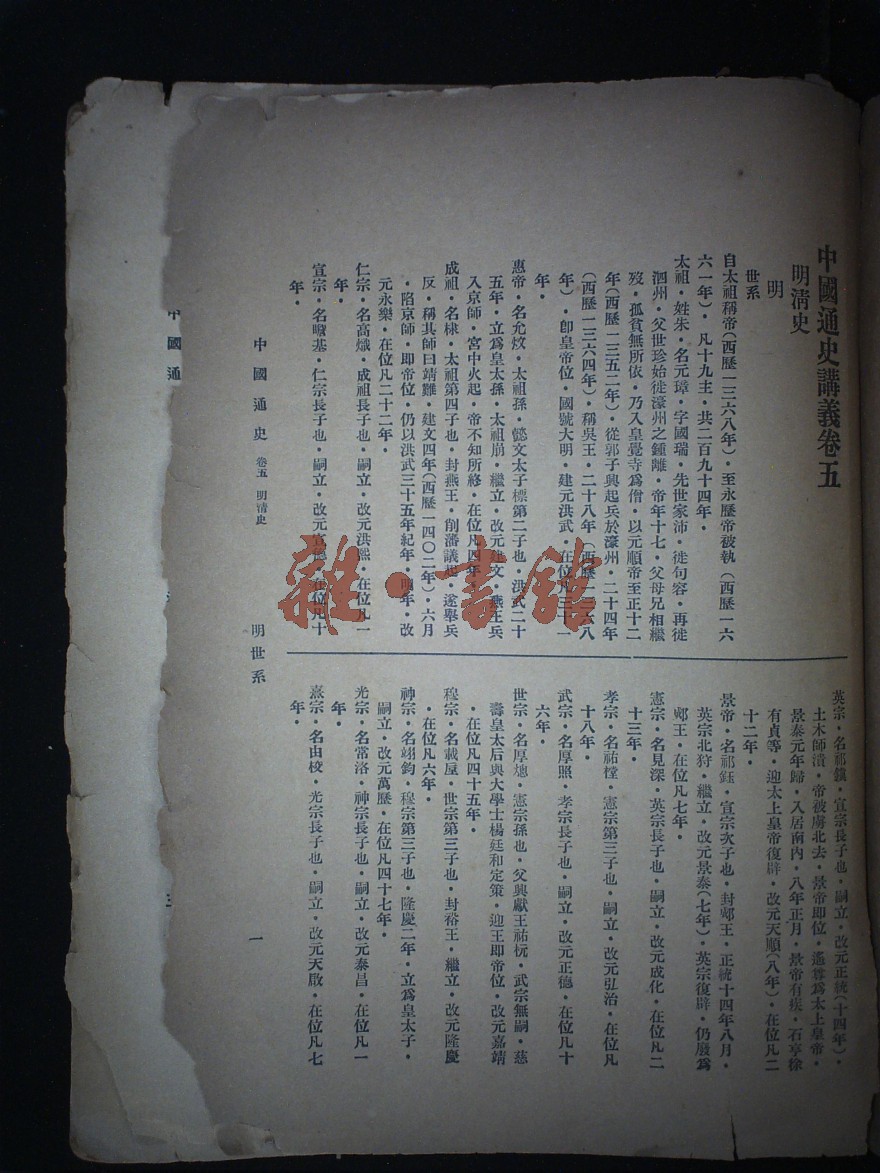 中國通史講義卷五
明清史
明
世系
自太祖稱帝(西歷一三六八年)．至永歷帝被執(西歷一六
六一年)．凡十九主．共二百九十四年．
太祖．姓朱．名元璋．字國瑞．先世家沛．徙句容．再徙
泗州．父世珍始徙濠州之鍾離．帝年十七．父母兄相繼
歿．孤貧無所依．乃入皇覺寺爲僧．以元順帝至正十二
年(西歷一三五二年)．從郭子興起兵於濠州．二十四年
(西歷一三六四年)．稱吳王．二十八年．(西歷一三六八
年)．卽皇帝位．國號大明．建元洪武．在位凡三十一
年．
惠帝．名允炆．太祖孫．懿文太子標第二子也．洪武二十
五年．立爲皇太孫．太祖崩．繼立．改元建文．燕王兵
入京師．宮中火起．帝不知所終．在位凡四年．
成祖．名棣．太祖第四子也．封燕王．削藩議起．遂舉兵
反．稱其師曰靖難．建文四年(西歷一四〇二年)．六月
．陷京師．卽帝位．仍以洪武三十五年紀年．明年．改
元永樂．在位凡二十二年．
仁宗．名高熾．成祖長子也．嗣立．改元洪熙．在位凡一
年．
宣宗．名瞻基．仁宗長子也．嗣立．改元宣德．在位凡十
年．
英宗．名祁鎮．宣宗長子也．嗣立．改元正統(十四年)．
土木師潰．帝被虜北去．景帝卽位．遙尊爲太上皇帝．
景泰元年歸．入居南內．八年正月．景帝有疾．石亨徐
有貞等．迎太上皇帝復辟．改元天順(八年)．在位凡二
十二年．
景帝．名祁鈺．宣宗次子也．封郕王．正統十四年八月．
英宗北狩．繼立．改元景泰(七年)．英宗復辟．仍廢爲
郕王．在位凡七年．
憲宗．名見深．英宗長子也．嗣立．改元成化．在位凡二
十三年．
孝宗．名祐樘．憲宗第三子也．嗣立．改元弘治．在位凡
十八年．
武宗．名厚照．孝宗長子也．嗣立．改元正德．在位凡十
六年．
世宗．名厚熜．憲宗孫也．父興獻王祐杬．武宗無嗣．慈
壽皇太后與大學士楊廷和定策．迎王卽帝位．改元嘉靖
．在位凡四十五年．
穆宗．名載垕．世宗第三子也．封裕王．繼立．改元隆慶
．在位凡六年．
神宗．名翊鈞．穆宗第三子也．隆慶二年．立爲皇太子．
嗣立．改元萬歷．在位凡四十七年．
光宗．名常洛．神宗長子也．嗣立．改元泰昌．在位凡一
年．
熹宗．名由校．光宗長子也．嗣立．改元天啟．在位凡七
年．
中國通史 卷五 明清史 明世系 一
中國通
雜·書館